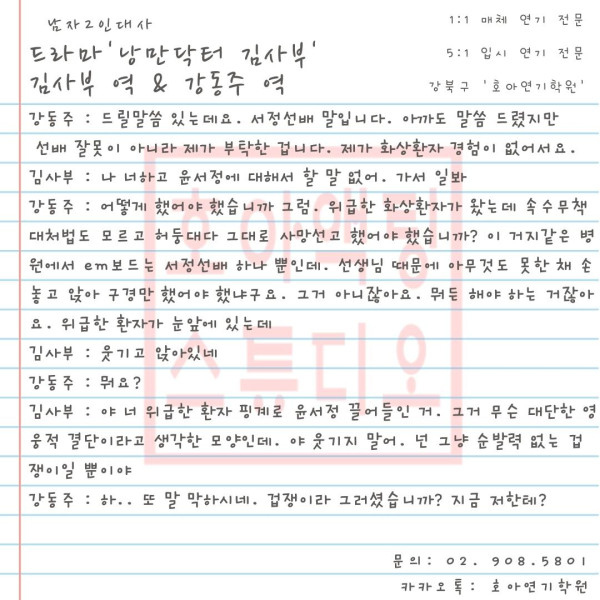 남자2인대사
1:1 매체 연기 전문
드라마'낭만닥터 김사부'
5:1 입시 연기 전문
김사부 역 & 강동주 역
강북구 '호아연기학원'
강동주 : 드릴말씀 있는데요. 서정선배 말입니다. 아까도 말씀 드렸지만
선배 잘못이 아니라 제가 부탁한 겁니다. 제가 화상환자 경험이 없어서요.
김사부 : 나 너하고 윤서정에 대해서 할 말 없어. 가서 일봐
강동주 : 어떻게 했어야 했습니까 그럼. 위급한 화상환자가 왔는데 속수무책
대처법도 모르고 허둥대다 그대로 사망선고 했어야 했습니까? 이 거지같은 병
원에서 em보드는 서정선배 하나 뿐인데. 선생님 때문에 아무것도 못한 채 손
놓고 앉아 구경만 했어야 했냐구요. 그거 아니잖아요. 뭐든 해야 하는 거잖아
요. 위급한 환자가 눈앞에 있는데
김사부 : 웃기고 앉아있네
강동주 : 뭐요?
김사부 : 야 너 위급한 환자 핑계로 윤서정 끌어들인 거. 그거 무슨 대단한 영
웅적 결단이라고 생각한 모양인데. 야 웃기지 말어. 넌 그냥 순발력 없는 겁
쟁이일 뿐이야
강동주 : 하.. 또 말 막하시네. 겁쟁이라 그러셨습니까? 지금 저한테?
호아액팅
스튜디오
문의: 02. 908.5801
카카오톡: 호아연기학원